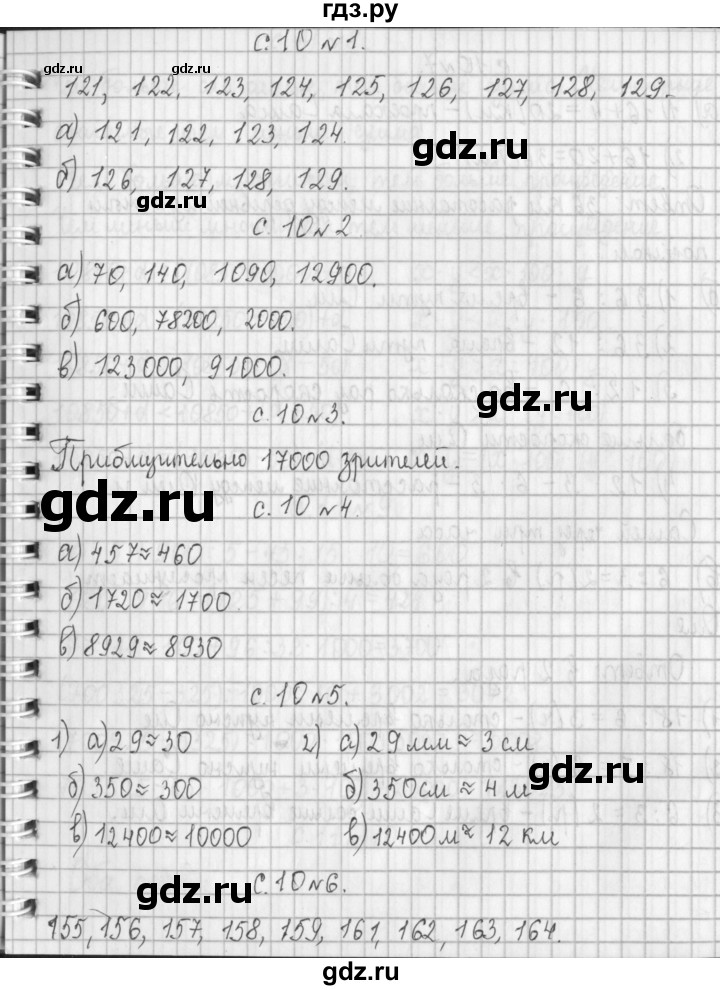 гдз.ру
с.10 №1.
121, 122, 123, 124, 125, 126, 127, 128, 129.
а) 121, 122, 123, 124.
б) 126, 127, 128, 129.
с. 10 №2
а) 70, 140, 1090, 12900.
б) 600, 78200, 2000.
в) 123000, 91000.
с. 10 №3.
Приблизительно 17000 зрителей.
с. 10 №4.
а) 457≈460
б) 1720≈1700.
в) 8929≈8930
с. 10 №5.
1) а) 29≈30 2) а) 29 мм ≈ 3 см
б) 350≈300 б) 350 см ≈ 4 м
в) 12400≈10000 в) 12400 м ≈ 12 км
с. 10 №6.
155, 156, 157, 158, 159, 161, 162, 163, 164.
gdz.ru
gdz.ru
gdz.ru
gdz.ru
gdz.ru
gdz.ru
gdz.ru
gdz.ru
gdz.ru
gdz.ru
gdz.ru